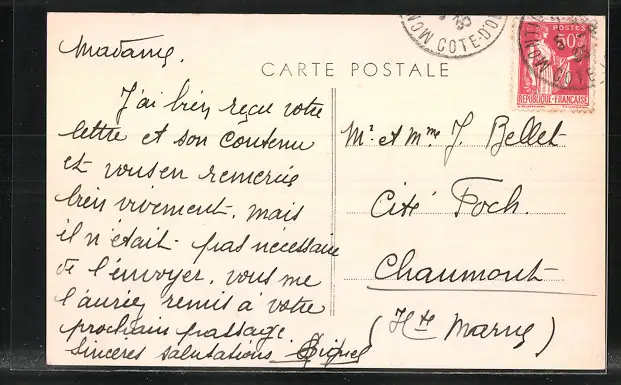 Madame,
J'ai bien reçu votre
lettre et son contenu
et vous en remercie
bien vivement. mais
il n'était pas nécessaire
de l'envoyer, vous me
l'auriez remis à votre
prochain passage.
Sincères salutations
CARTE POSTALE
COTE-D'OR
POSTES
50c
REPUBLIQUE-FRANÇAISE
Mr et Mme J. Bellet
Cité Foch.
Chaumont
(Hte Marne)